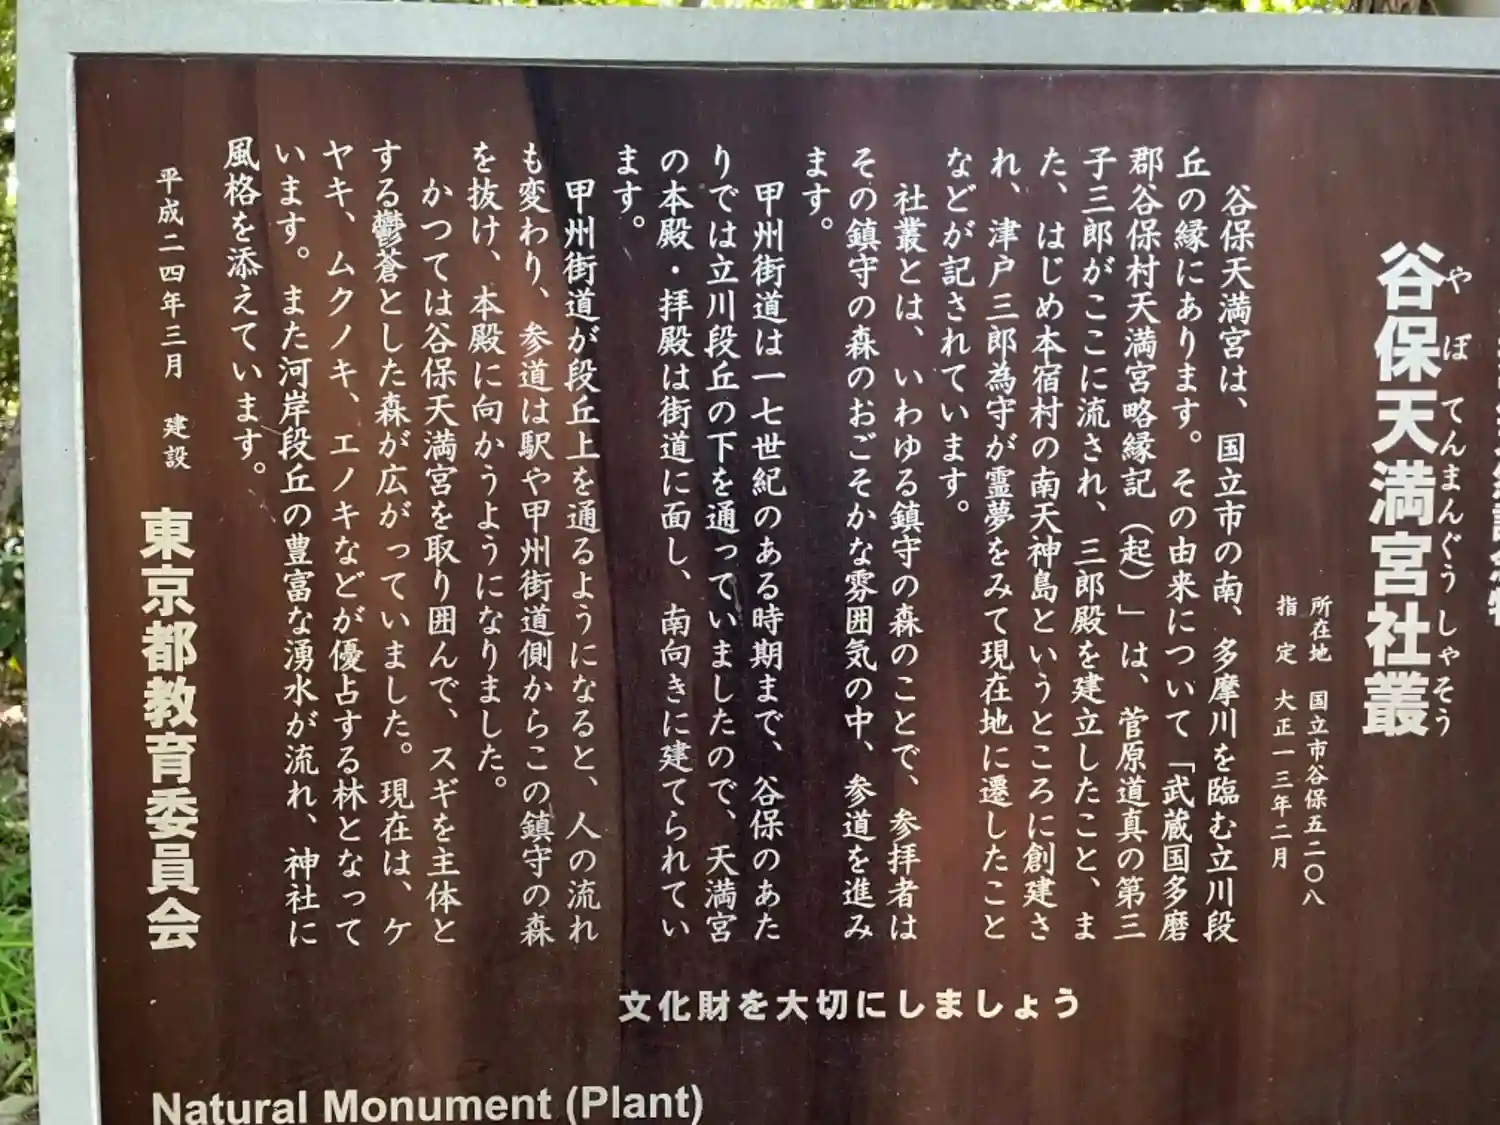 谷保天満宮社叢
や ぼ てんまんぐう しゃそう
所在地 国立市谷保五二〇八
指 定 大正一三年二月
谷保天満宮は、国立市の南、多摩川を臨む立川段
丘の縁にあります。その由来について「武蔵国多磨
郡谷保村天満宮略縁記（起）」は、菅原道真の第三
子三郎がここに流され、三郎殿を建立したこと、ま
た、はじめ本宿村の南天神島というところに創建さ
れ、津戸三郎為守が霊夢をみて現在地に遷したこと
などが記されています。
社叢とは、いわゆる鎮守の森のことで、参拝者は
その鎮守の森のおごそかな雰囲気の中、参道を進み
ます。
甲州街道は一七世紀のある時期まで、谷保のあた
りでは立川段丘の下を通っていましたので、天満宮
の本殿・拝殿は街道に面し、南向きに建てられてい
ます。
甲州街道が段丘上を通るようになると、人の流れ
も変わり、参道は駅や甲州街道側からこの鎮守の森
を抜け、本殿に向かうようになりました。
かつては谷保天満宮を取り囲んで、スギを主体と
する鬱蒼とした森が広がっていました。現在は、ケ
ヤキ、ムクノキ、エノキなどが優占する林となって
います。また河岸段丘の豊富な湧水が流れ、神社に
風格を添えています。
平成二四年三月 建設
東京都教育委員会
文化財を大切にしましょう
Natural Monument (Plant)